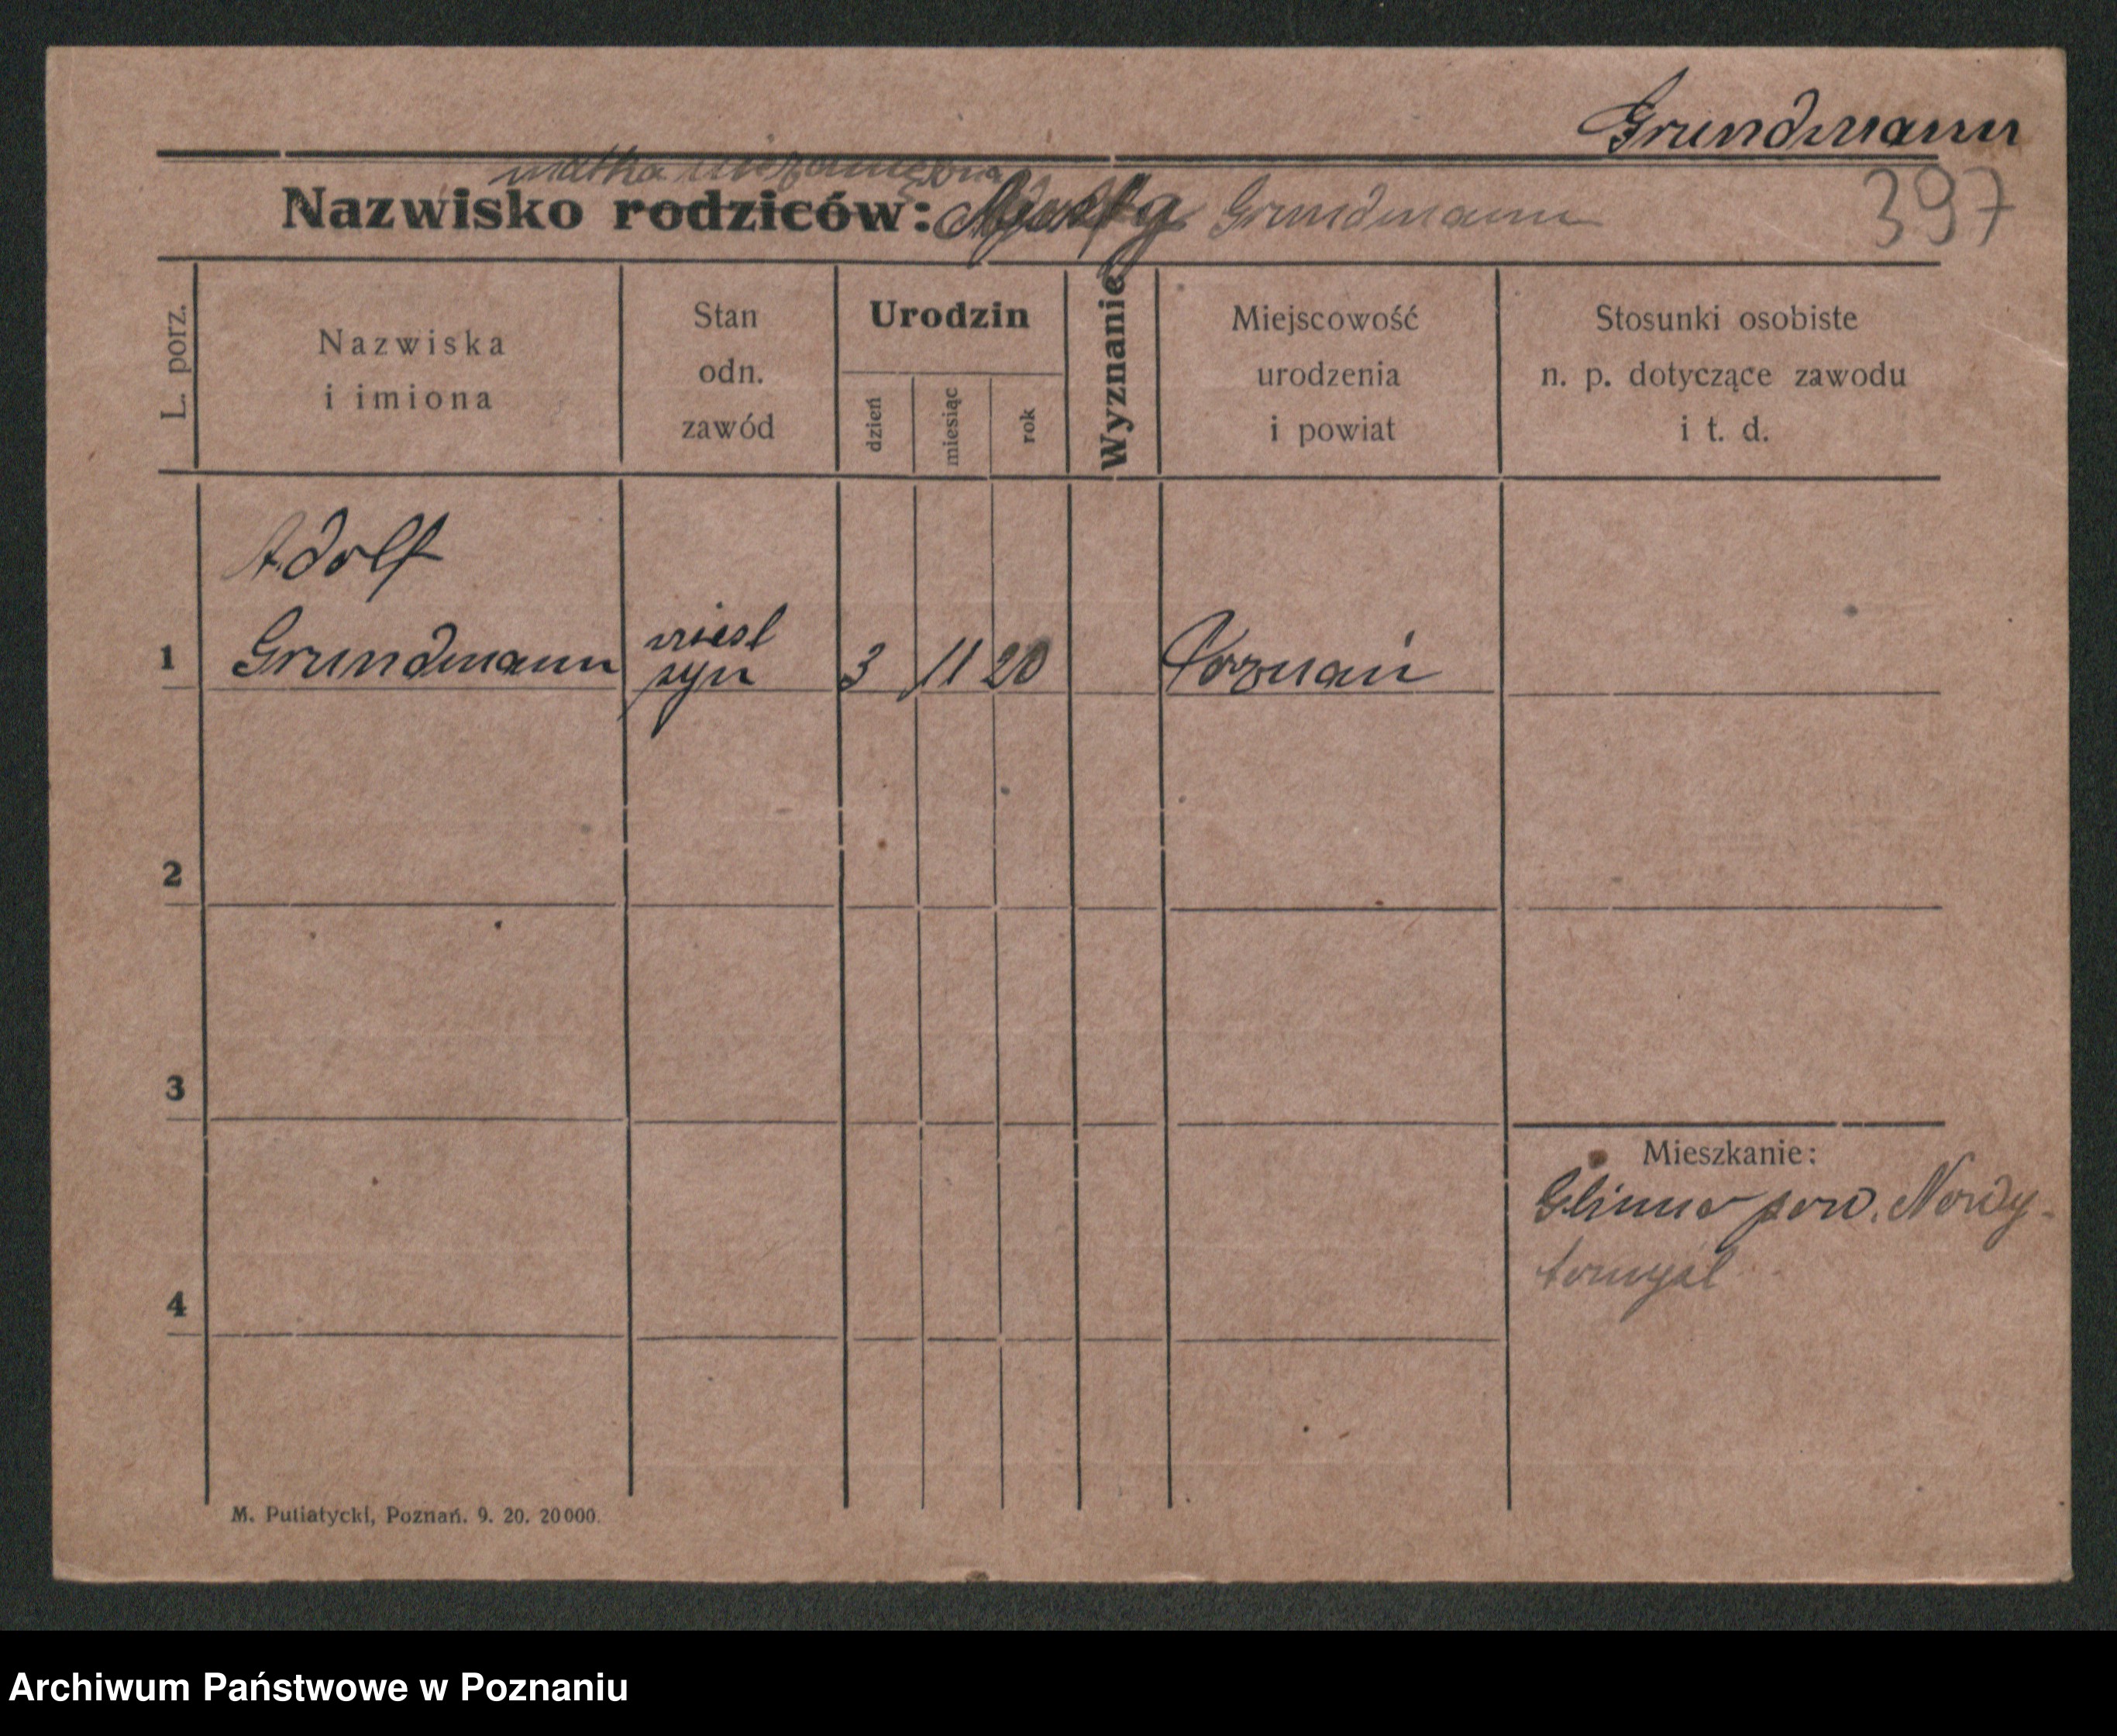 Grundmann
matka niezamężna
Nazwisko rodziców: Grundmann
397
L. porz.
Nazwiska
i imiona
Stan
odn.
zawód
Urodzin
dzień
miesiąc
rok
Wyznanie
Miejscowość
urodzenia
i powiat
Stosunki osobiste
n. p. dotyczące zawodu
i t. d.
Adolf
1 Grundmann
syn 3 11 20 Poznań
2
3
Mieszkanie:
Glinno pow. Nowy-
tomysl
4
M. Putiatycki, Poznań. 9. 20. 20000.
Archiwum Państwowe w Poznaniu